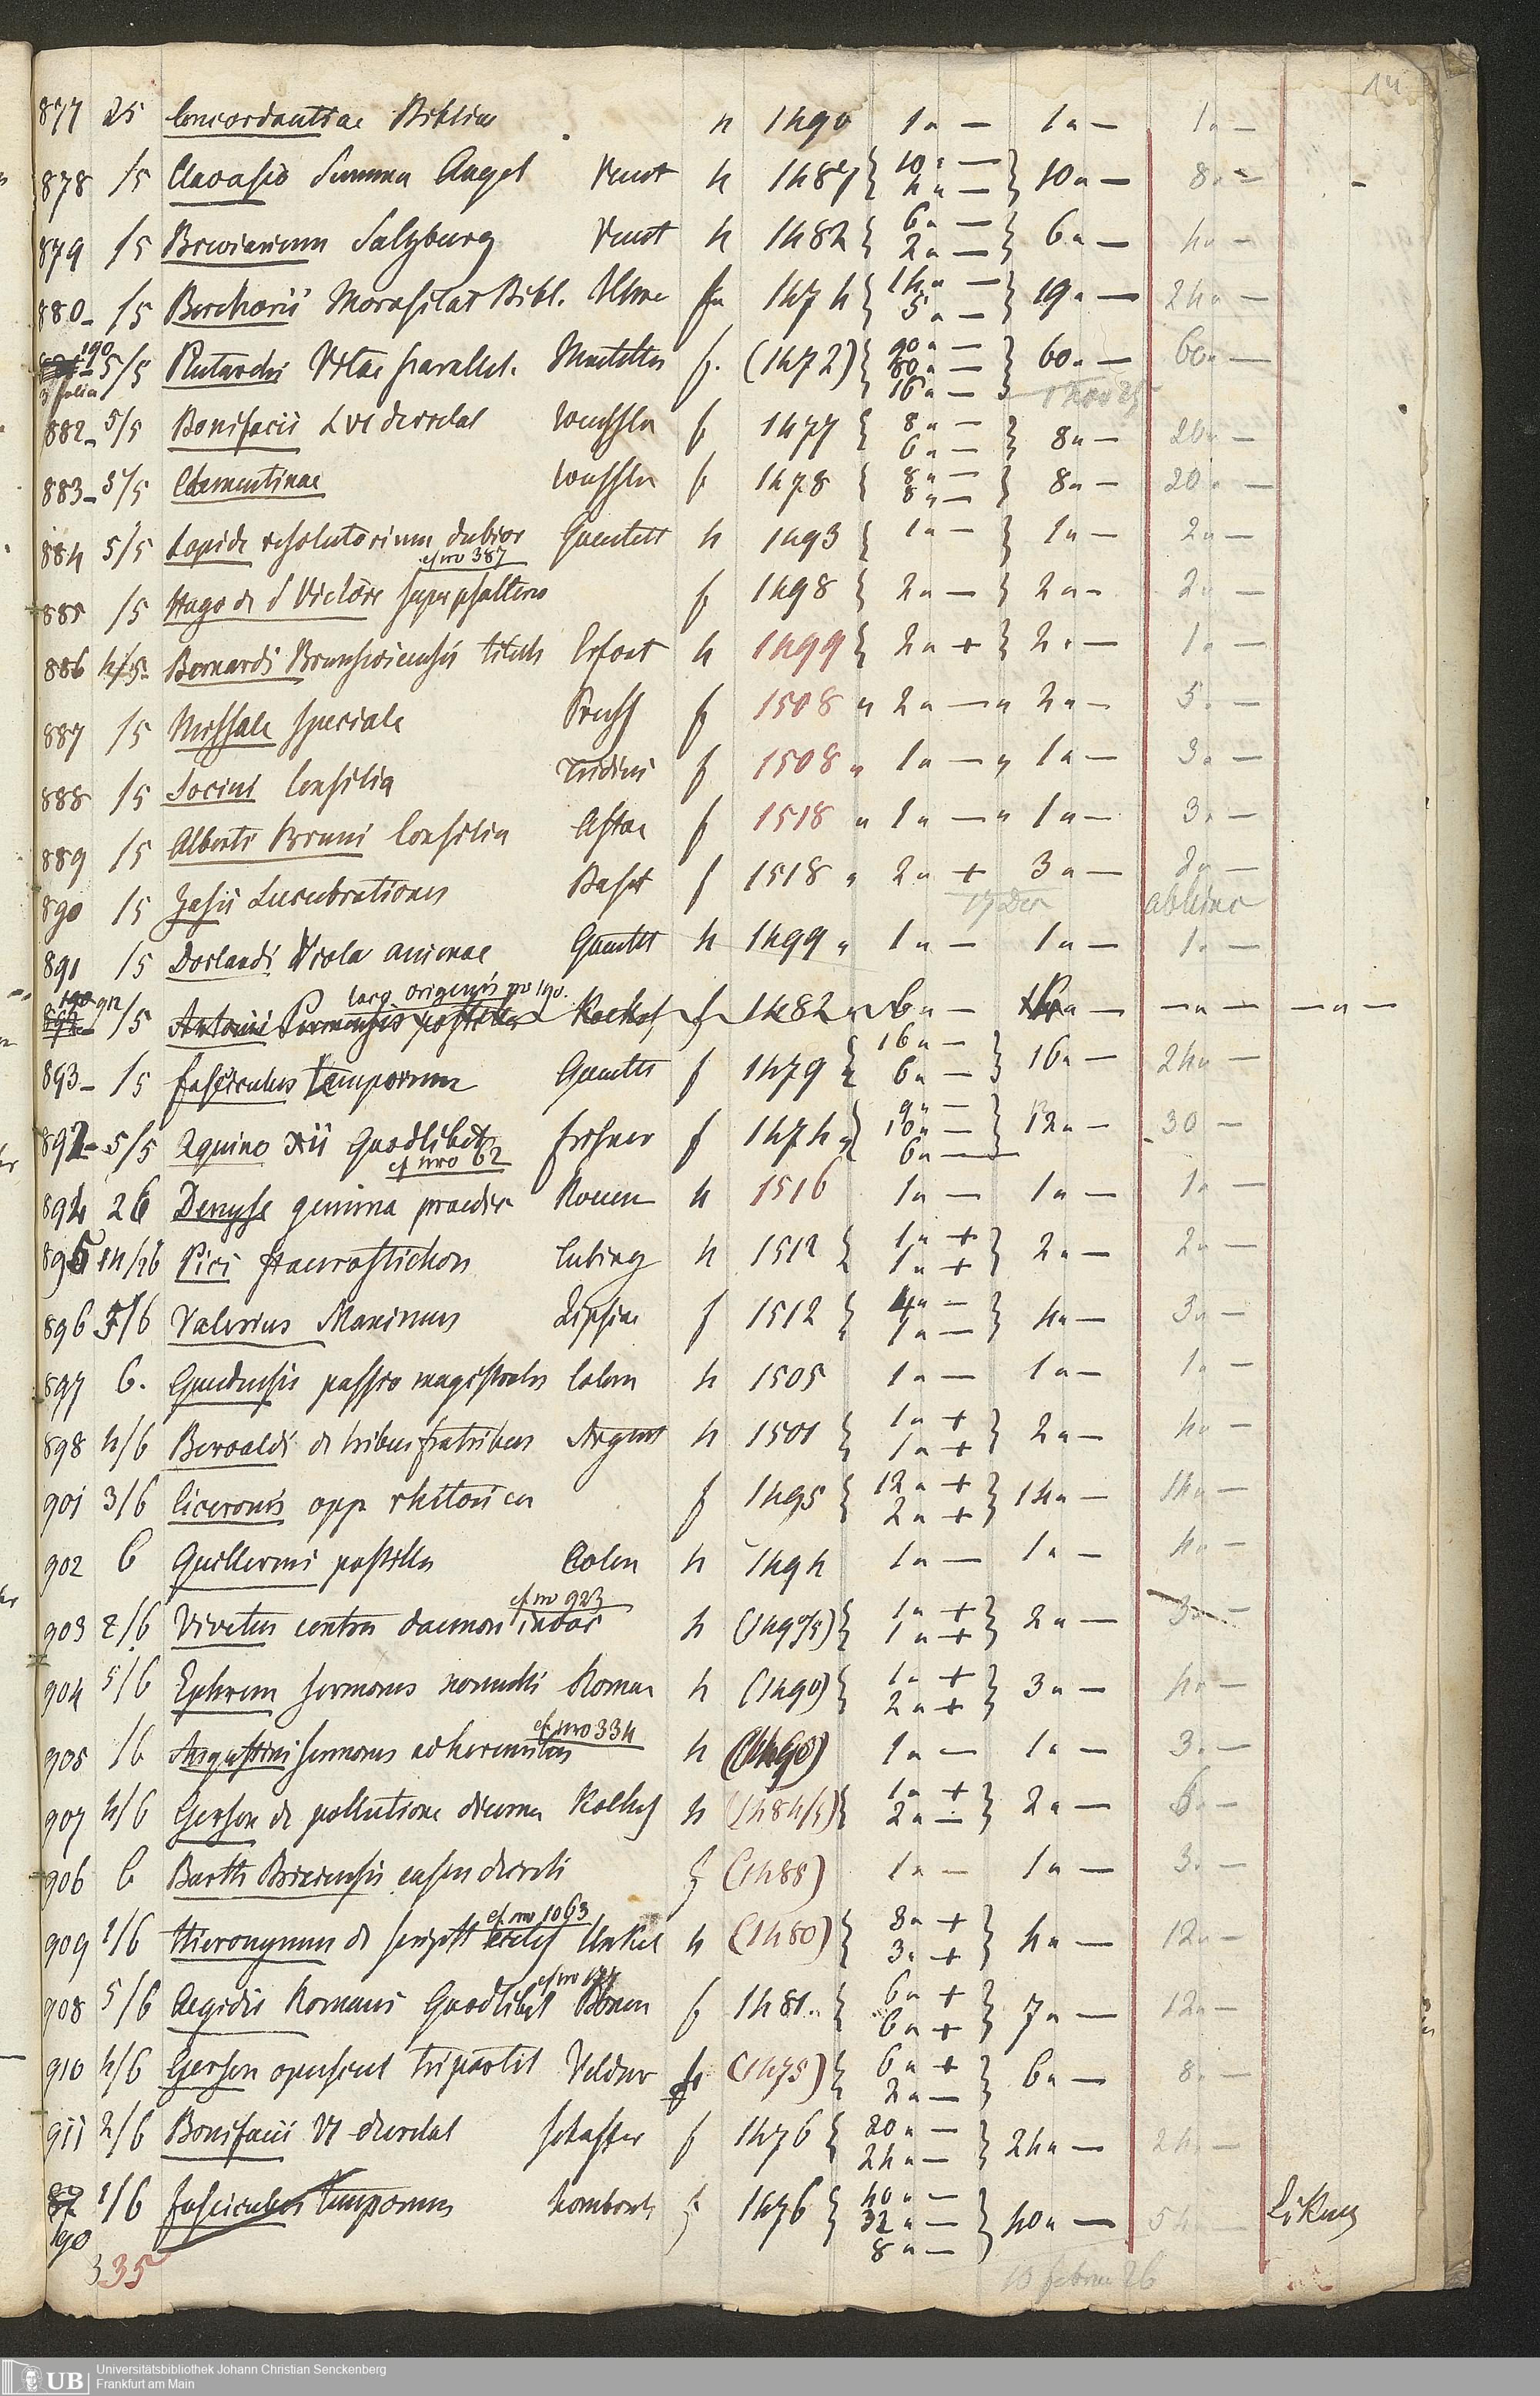 14
877 25 Concordantiae Bibliae n 1490 1 „ — 1 „ — 1 „ —
878 /5 Clavasio Summa Angel Venet 4 1487 { 10 „ — 4 „ — } 10 „ — 8 „ —
879 /5 Breviarium Salzburg Venet 4 1482 { 6 „ — 2 „ — } 6 „ — 4 „ —
880 /5 Berchorii Moralitat Bibl. Ulmae f 1474 { 14 „ — 5 „ — } 19 „ — 24 „ —
190 5/5 Plutarchi Vitae parallel. f. (1472) { 90 „ — 80 „ — 16 „ — } 60 „ — 60 „ —
3 folia
882 5/5 Bonifacii L VI decretal f 1477 { 8 „ — 6 „ — } 8 „ — 20 „ —
883 5/5 Clementinae f 1478 { 8 „ — 8 „ — } 8 „ — 20 „ —
884 5/5 Lapide resolutorium dubior Quentell 4 1493 { 1 „ — } 1 „ — 2 „ —
cf nro 387
885 /5 Hugo de S Victore super psalterio f 1498 { 2 „ — } 2 „ — 2 „ —
886 4/5 Bernardi Brunswicensis tituli Erfort 4 1499 { 2 „ + } 2 „ — 1 „ —
887 /5 Missale speciale Pruss f 1508 „ 2 „ — „ 2 „ — 5 „ —
888 /5 Socini Consilia Tridini f 1508 „ 1 „ — „ 1 „ — 3 „ —
889 /5 Alberti Bruni Consilia Astae f 1518 „ 1 „ — „ 1 „ — 3 „ —
890 15 Zasii Lucubrationes Basel f 1518 „ 2 „ + 3 „ — 2 „ —
17 Dec
891 /5 Dorlandi Viola animae Quentel 4 1499 „ 1 „ — 1 „ — 1 „ —
loco origenis nro 190.
912 /5 Antonii Parmensis postilla Koelhof f 1482 „ 6 „ — — „ — — „ —
893 /5 fasciculus temporum Quentel f 1479 { 16 „ — 6 „ — } 16 „ — 24 „ —
892 5/5 Aquino XII Quodlibet f 1474 { 9 „ — 10 „ — 6 „ — } 12 „ — 30 —
cf nro 62
894 26 Denyse gemma praedic Rouen 4 1516 1 „ — 1 „ — 1 „ —
895 Pici staurostichon Tubing 4 1512 { 1 „ + 1 „ + } 2 „ — 2 „ —
896 5/6 Valerius Maximus Lipsiae f 1512 { 4 „ — 1 „ — } 4 „ — 3 „ —
897 6. Gaudensis passio magistralis Colon 4 1505 1 „ — 1 „ — 1 „ —
898 4/6 Beroaldi de tribus fratribus Argent 4 1501 { 1 „ + 1 „ + } 2 „ — 4 „ —
901 3/6 Ciceronis opp rhetorica f 1495 { 12 „ + 2 „ + } 14 „ — 14 „ —
902 6 Guillermi postilla Colon 4 1494 1 „ — 1 „ — 4 „ —
cf nro 923
903 2/6 Vivetus contra daemon invoc 4 (1490/5) { 1 „ + 1 „ + } 2 „ — 3 „ —
904 5/6 Ephrem sermones nonnulli Romae 4 (1490) { 1 „ + 2 „ + } 3 „ — 4 „ —
cf nro 334
905 /6 Augustini sermones ad heremitas 4 (1490) 1 „ — 1 „ — 3 „ —
907 4/6 Gerson de pollutione diurna Koelhof 4 (1484/5) { 1 „ + 2 „ — } 2 „ — 6 „ —
906 6 Barth Brixiensis casus decreti f (1488) 1 „ — 1 „ — 3 „ —
cf nro 1063
909 1/6 Hieronymus de script eccles Unkel 4 (1480) { 8 „ + 3 „ + } 4 „ — 12 „ —
908 5/6 Aegidii Romani Quodlibet f 1481 { 6 „ + 6 „ + } 7 „ — 12 „ —
910 4/6 Gerson opuscul tripartit Veldner f (1475) { 6 „ + 2 „ — } 6 „ — 8 „ —
911 2/6 Bonifacii VI decretal Schoffer f 1476 { 20 „ — 24 „ — } 24 „ — 24 „ —
190 1/6 fasciculus temporum f 1476 { 40 „ — 32 „ — 8 „ — } 40 „ — 54 „ —
335
10 febru 26
UB Universitätsbibliothek Johann Christian Senckenberg
Frankfurt am Main